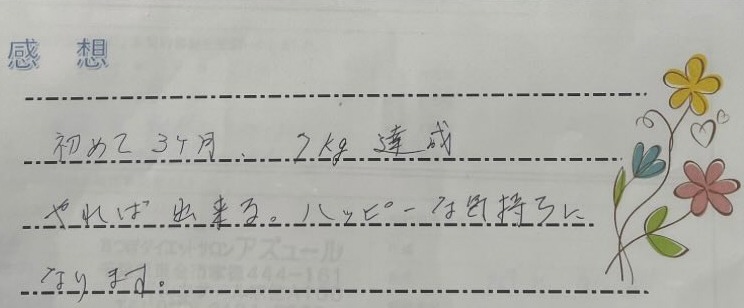 感想
初めて3ヶ月、7kg達成
やれば出来る。ハッピーな気持ちに
なります。
アズュール
444-161